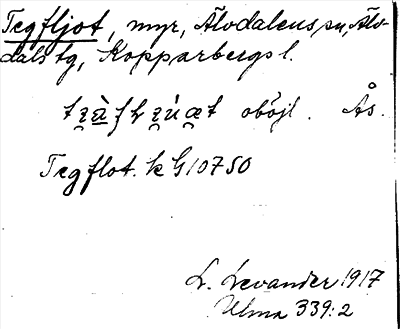 Tegfljot, myr, Älvdalens sn, Älv-
dals tg, Kopparbergs l.
oböjl. Ås.
Tegflot. k G 10750
L. Levander 1917
Ulma 339:2